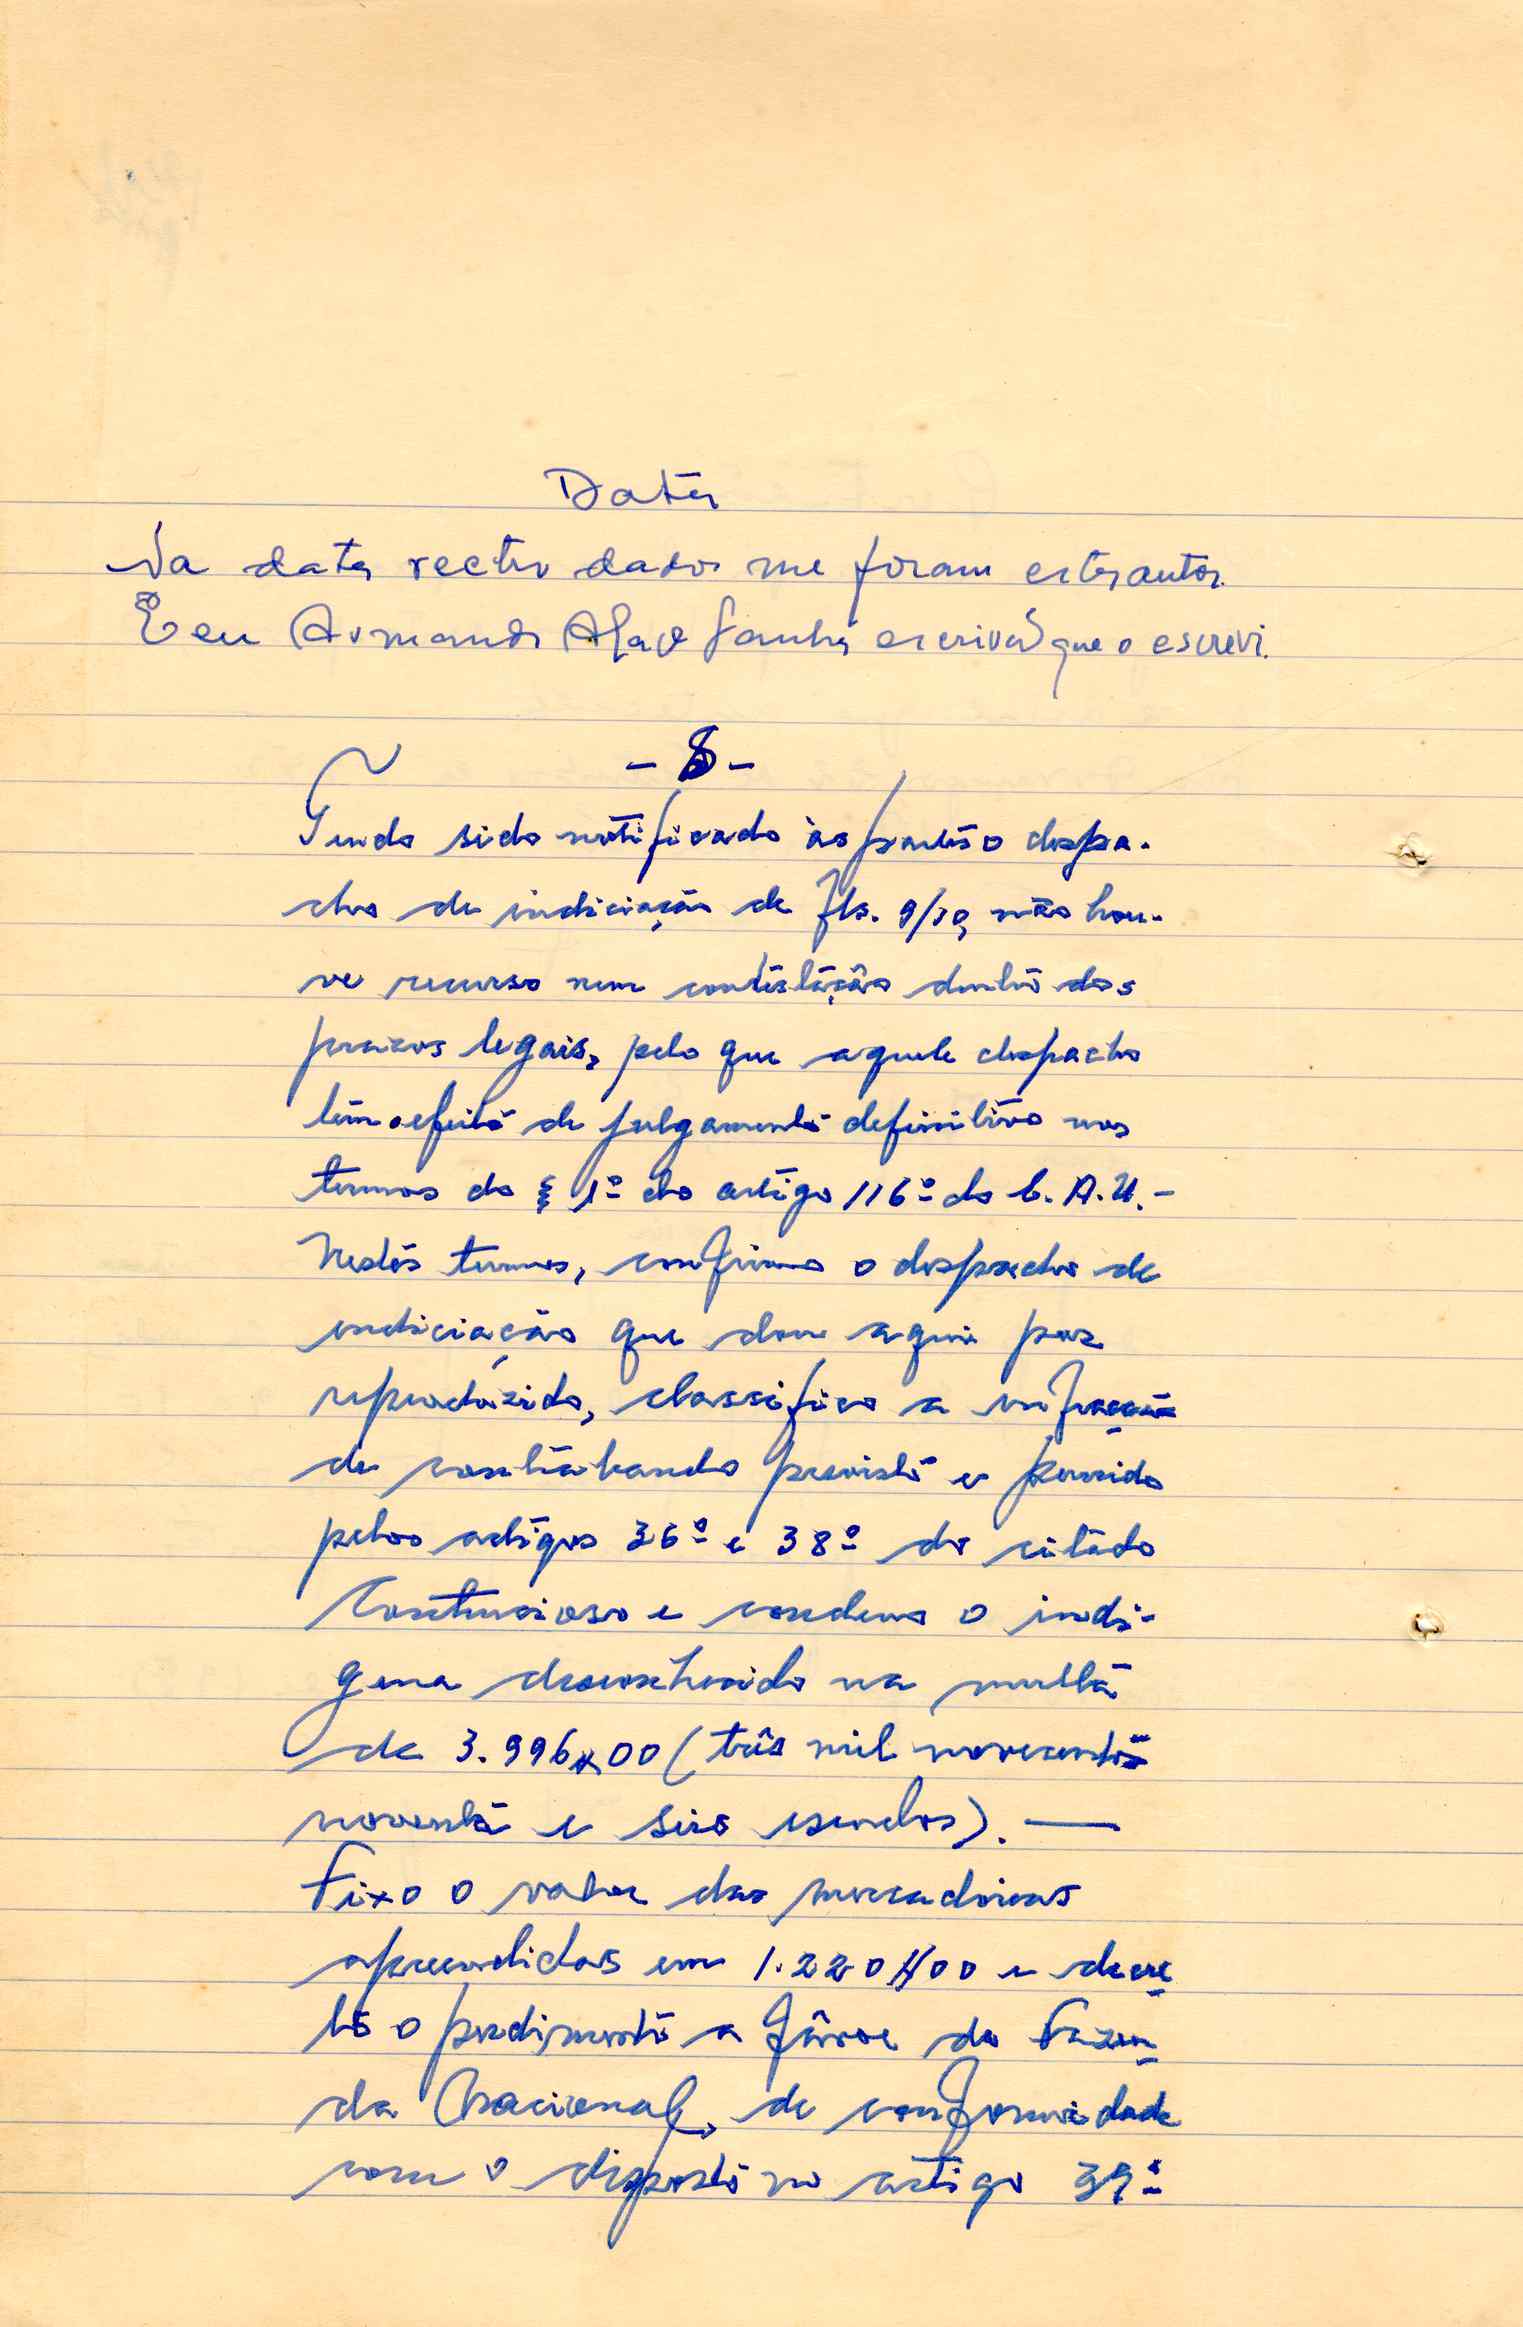 Data
Na data recto dados me foram estes autos.
E eu Armando escrivão que o escrevi.
- S -
Tendo sido notificado às partes o despa-
cho de indiciação de fls. 9/10, não hou-
ve recurso nem contestação dentro dos
prazos legais, pelo que aquele despacho
tem o efeito de julgamento definitivo nos
termos do § 1º do artigo 116º do C. A. U. -
Nestes termos, confirmo o despacho de
indiciação que dou aqui por
reproduzido, classifico a infracção
de contrabando previsto e punido
pelos artigos 36º e 38º do citado
Contencioso e condeno o indí-
gena desconhecido na multa
de 3.996$00 (três mil novecentos
noventa e seis escudos). —
Fixo o valor das mercadorias
apreendidas em 1.220$00 e decre
to o perdimento a favor da Fazen
da Nacional, de conformidade
com o disposto no artigo 39º